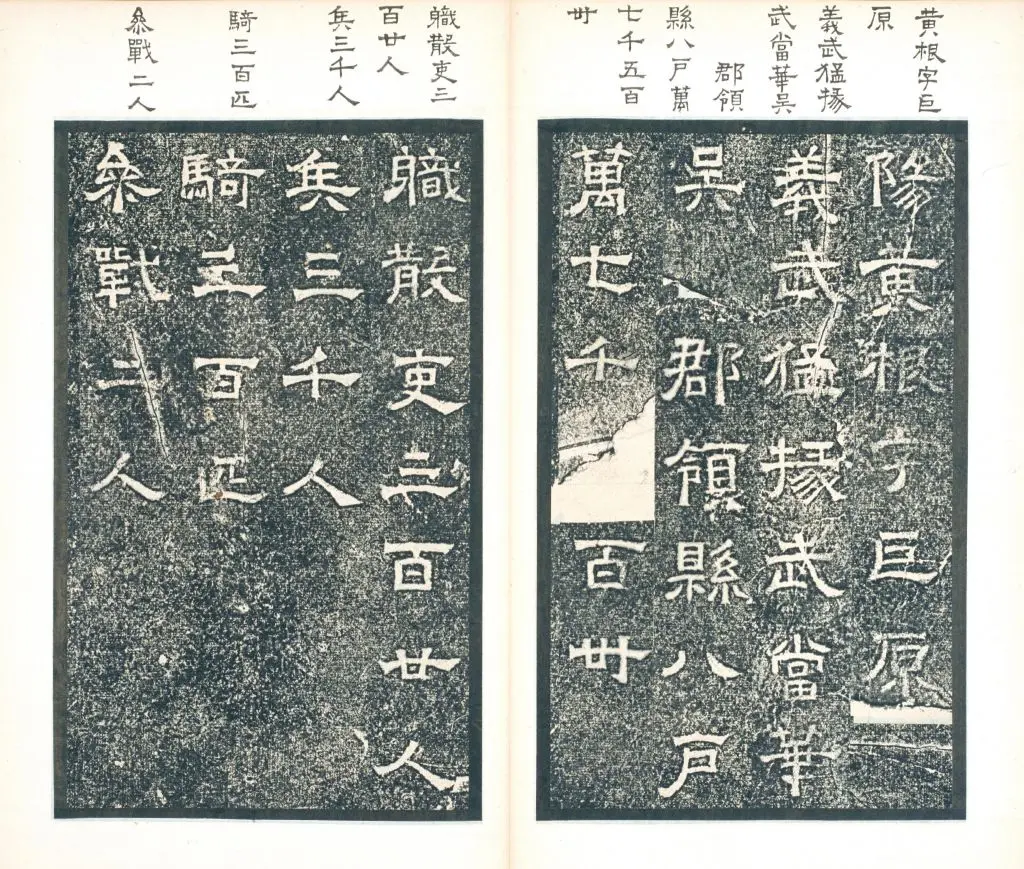 黃根字巨
原
義武猛掾
武當華吳
郡領
縣八戶萬
七千五百
卅
陽黃根字巨原
義武猛掾武當華
吳郡領縣八戶
萬七千百卅
軄散吏三
百廿人
兵三千人
騎三百匹
參戰二人
軄散吏三百廿人
兵三千人
騎三百匹
參戰二人